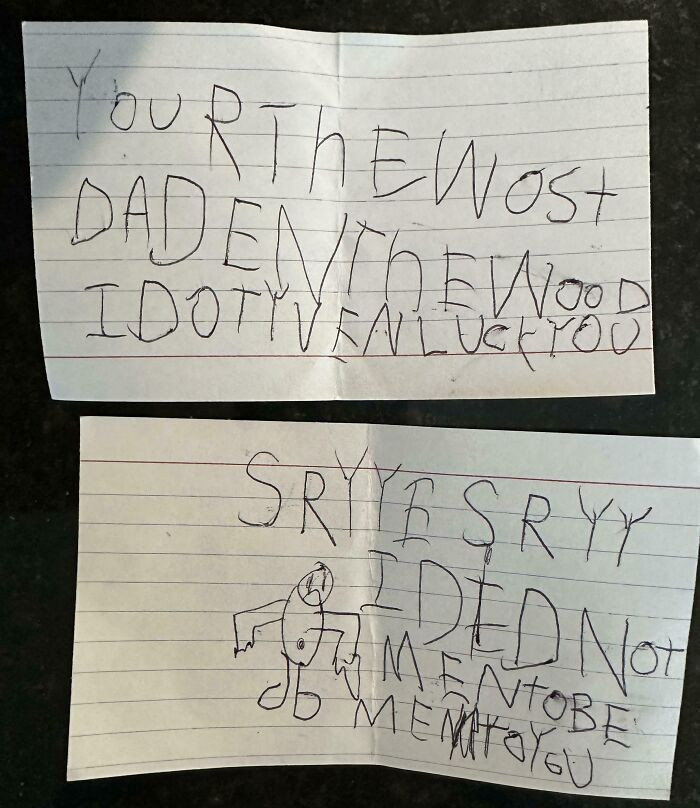 YOU R ThE WOSt
DAD EN ThE WOOD
I DOTY VEN LUCK YOU
SRYYE SRYY
I DED NOt
MEN tO BE
MEN tO YOU